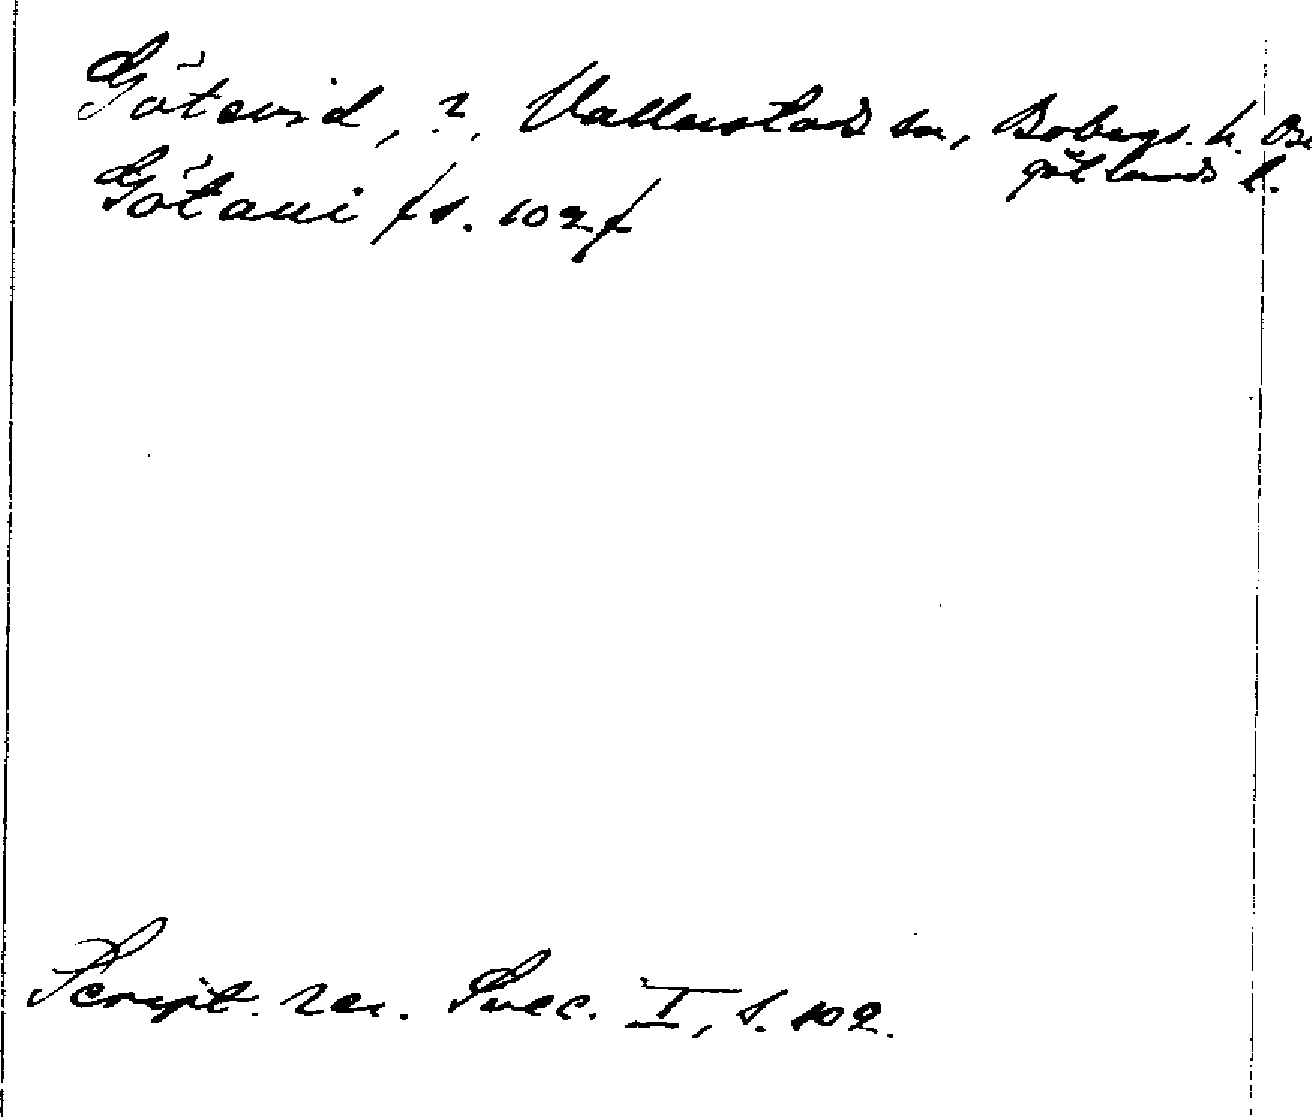 Götevid, ?, Vallerstads sn, Bobergs. h. Ös
götlands l.
Götavi /s. 102/
Script. rer. Svec. I, s. 102.